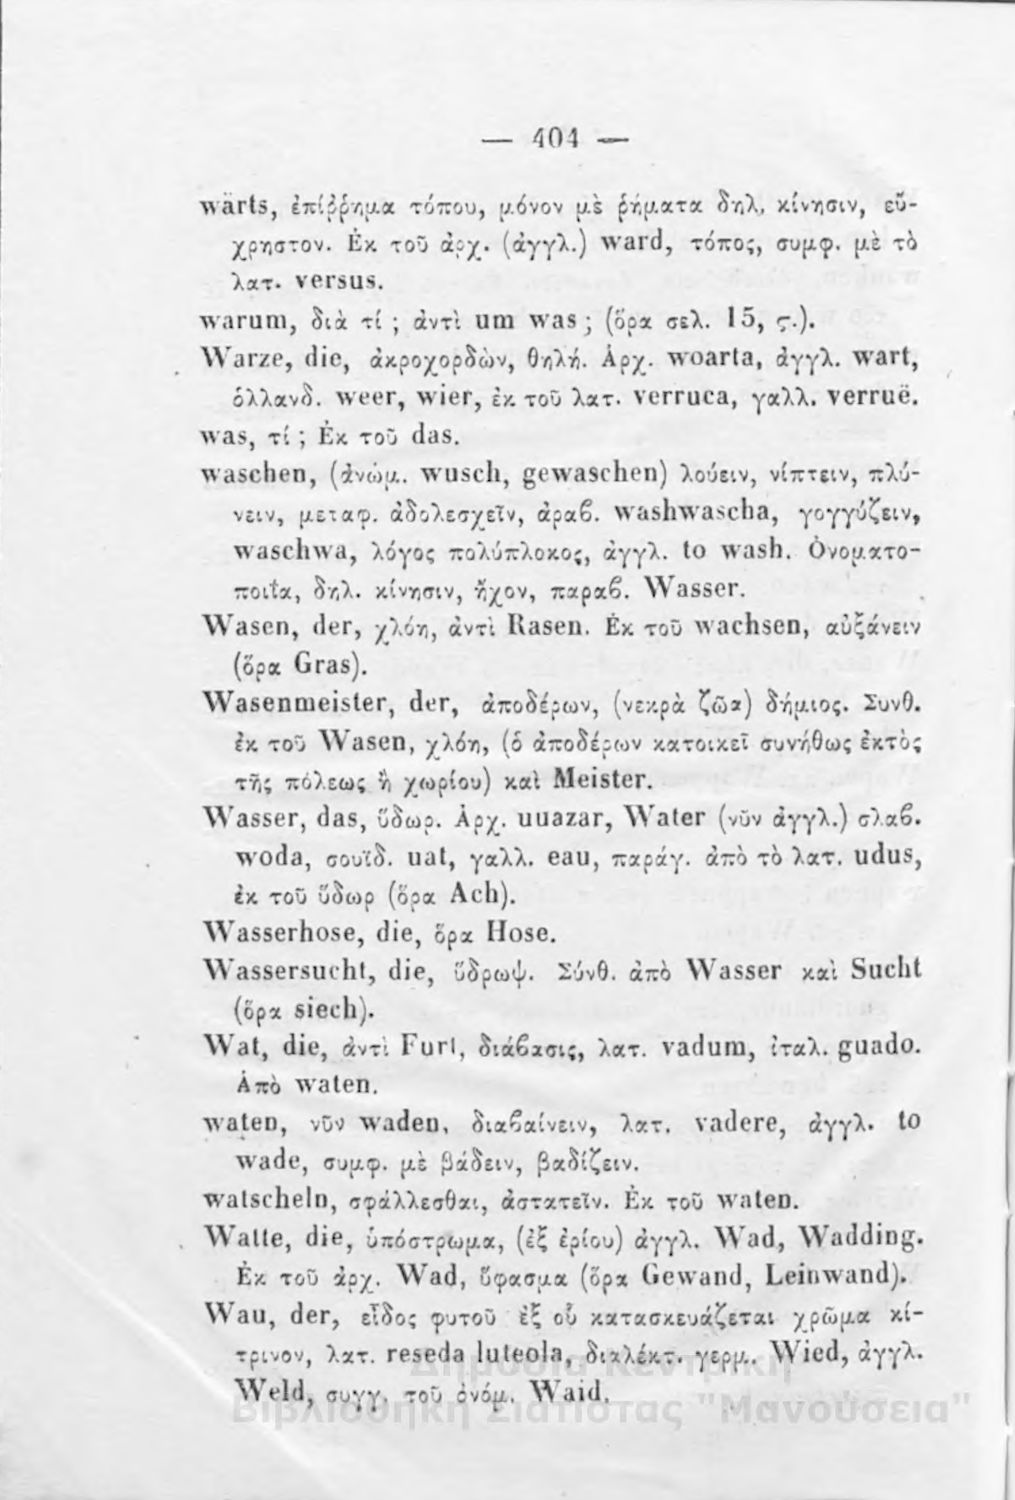 — 404 —
wärts, ἐπίῤῥημα τόπου, μόνον μὲ ῥήματα δηλ. κίνησιν, εὔ-
χρηστον. Ἐκ τοῦ ἀρχ. (ἀγγλ.) ward, τόπος, συμφ. μὲ τὸ
λατ. versus.
warum, διὰ τί ; ἀντὶ um was ; (ὅρα σελ. 15, ς.).
Warze, die, ἀκροχορδὼν, θηλή. Ἀρχ. woarta, ἀγγλ. wart,
ὁλλανδ. weer, wier, ἐκ τοῦ λατ. verruca, γαλλ. verruë.
was, τί ; Ἐκ τοῦ das.
waschen, (ἀνώμ. wusch, gewaschen) λούειν, νίπτειν, πλύ-
νειν, μεταφ. ἀδολεσχεῖν, ἀραβ. washwascha, γογγύζειν,
waschwa, λόγος πολύπλοκος, ἀγγλ. to wash. Ὀνοματο-
ποιΐα, δηλ. κίνησιν, ἦχον, παραβ. Wasser.
Wasen, der, χλόη, ἀντὶ Rasen. Ἐκ τοῦ wachsen, αὐξάνειν
(ὅρα Gras).
Wasenmeister, der, ἀποδέρων, (νεκρὰ ζῶα) δήμιος. Συνθ.
ἐκ τοῦ Wasen, χλόη, (ὁ ἀποδέρων κατοικεῖ συνήθως ἐκτὸς
τῆς πόλεως ἢ χωρίου) καὶ Meister.
Wasser, das, ὕδωρ. Ἀρχ. uuazar, Water (νῦν ἀγγλ.) σλαβ.
woda, σουϊδ. uat, γαλλ. eau, παράγ. ἀπὸ τὸ λατ. udus,
ἐκ τοῦ ὕδωρ (ὅρα Ach).
Wasserhose, die, ὅρα Hose.
Wassersucht, die, ὕδρωψ. Σύνθ. ἀπὸ Wasser καὶ Sucht
(ὅρα siech).
Wat, die, ἀντὶ Furt, διάβασις, λατ. vadum, ἰταλ. guado.
Ἀπὸ waten.
waten, νῦν waden, διαβαίνειν, λατ. vadere, ἀγγλ. to
wade, συμφ. μὲ βάδειν, βαδίζειν.
watscheln, σφάλλεσθαι, ἀστατεῖν. Ἐκ τοῦ waten.
Watte, die, ὑπόστρωμα, (ἐξ ἐρίου) ἀγγλ. Wad, Wadding.
Ἐκ τοῦ ἀρχ. Wad, ὕφασμα (ὅρα Gewand, Leinwand).
Wau, der, εἶδος φυτοῦ ἐξ οὗ κατασκευάζεται χρῶμα κί-
τρινον, λατ. reseda luteola, διαλέκτ. γερμ. Wied, ἀγγλ.
Weld, συγγ. τοῦ ὀνόμ. Waid.
Δημόσια Κεντρική
Βιβλιοθήκη Σιάτιστας "Μανούσεια"